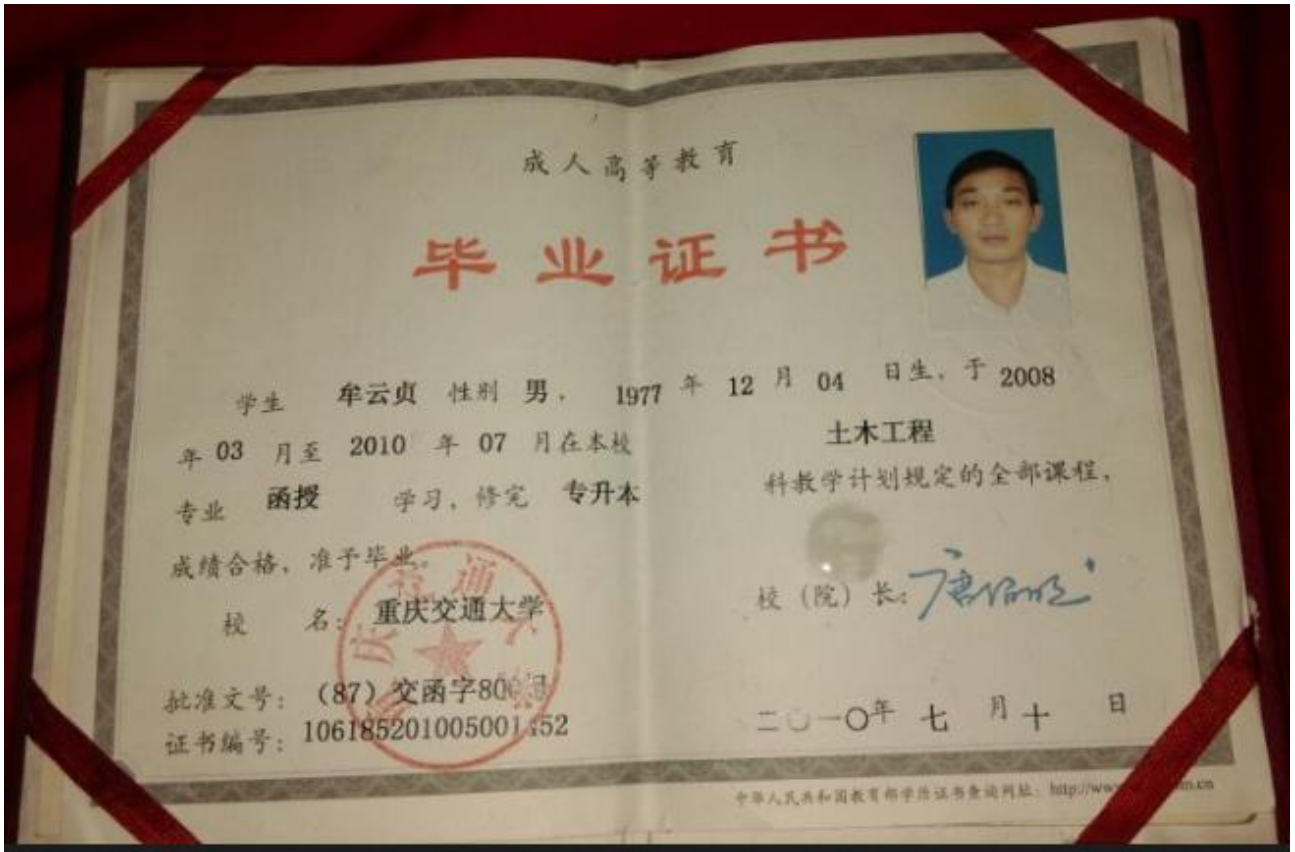 成人高等教育
毕业证书
学生 牟云贞 性别 男, 1977 年 12 月 04 日生, 于 2008
年 03 月至 2010 年 07 月在本校 土木工程
专业 函授 学习, 修完 专升本 科教学计划规定的全部课程,
成绩合格, 准予毕业。
校 名: 重庆交通大学
校（院）长:
批准文号: （87）交函字800号
证书编号: 106185201005001452
二〇一〇年 七 月 十 日
中华人民共和国教育部学历证书查询网址: http://www
重庆交通大学